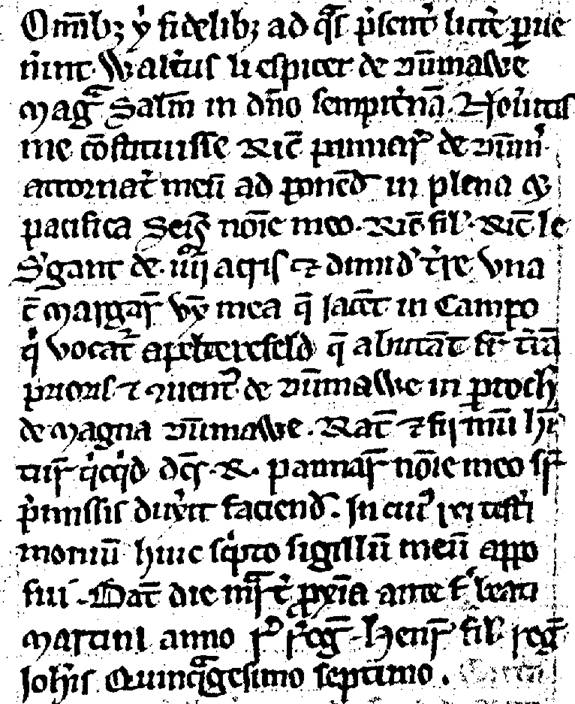 Om̄ib; x̓ fidelib; ad q̄s p̓sent̓ litt̓e p̱ue
n̓int Walt̓us le espicer de Dūmawe
magᵃ Salm̄ in dn̄o sempit̓nā. Nou̓itis
me cōstituisse Ric̄ paumar̓ de Dūm̓
attornat̓ meū ad ponēd̓ in plena &
pacifica Seis̓ noīe meo. Ric̄ fil̓ Ric̄ le
S̓gant de iiij acris & dimid̓ t̓re vna
c̄ Margar̓ vx̓ mea q̄ iacēt in Campo
q̓ vocat̓ apelterefeld q̄ abutāt t̓rā
prioris & de Dūmawe in p̱och̓
de Magna Dūmawe. Rat̄ & mū h̓i
tur̓ q̓cq̓d dc̄s R. paumar̓ noīe meo
p̓missis dux̓it faciend̓. In cui̓ rei testi
moniū huic sc̓pto sigillū meū appo
sui. Dat̄ die p̱xīa ante f̓ beati
Martini anno r̓ r̓eg̓ Henr̓ fil̓ reg̓
Joh̓is Quinqᵃgesimo septimo.